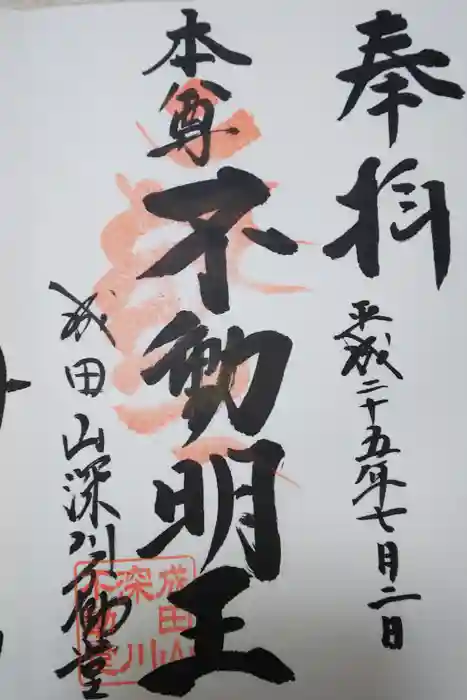 奉拝
平成二十五年七月二日
本尊
不動明王
成田山深川不動堂
成田山
深川
不動堂